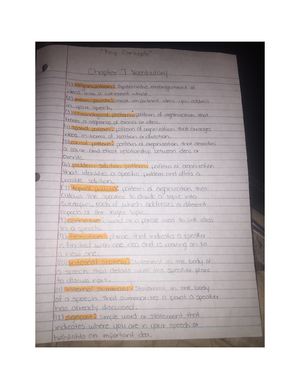 "Key Concepts"
Chapter 7 Vocabulary
1) organization: systematic arrangement of
ideas into a coherent whole.
2) main points: most important ideas you address
in your speech.
3) chronological pattern: pattern of organization that
traces a sequence of events or ideas.
4) spatial pattern: pattern of organization that arranges
ideas in terms of location or direction.
5) causal pattern: pattern of organization that describes
a cause and effect relationship between ideas or
events.
6) problem-solution pattern: pattern of organization
that identifies a specific problem and offers a
possible solution.
7) topical pattern: pattern of organization that
allows the speaker to divide a topic into
subtopics, each of which addresses a different
aspect of the larger topic.
8) connective: a word or a phrase used to link ideas
in a speech.
9) transition: phrase that indicates a speaker
is finished with one idea and is moving on to
a new one.
10) internal preview: statement in the body of
a speech that details what the speaker plans
to discuss next.
11) internal summary: statement in the body
of a speech that summarizes a point a speaker
has already discussed.
12) signpost: simple word or statement that
indicates where you are in your speech or
highlights an important idea.